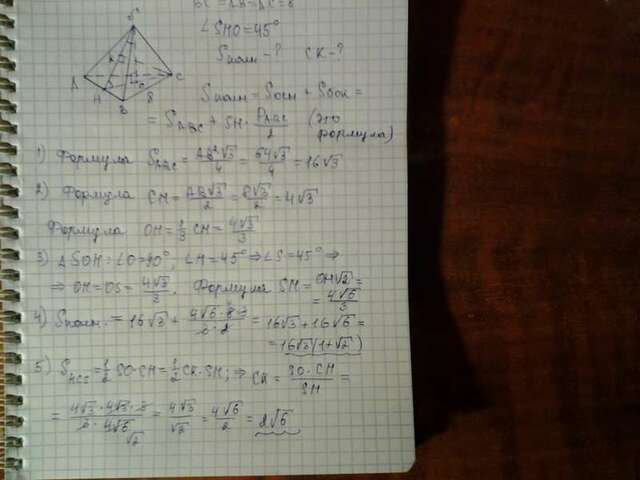 BC = AB = AC = 8
∠SHO = 45°
Sполн - ? CK - ?
S
A
H
B
C
O
8
Sполн = Sосн + Sбок =
= S△ABC + SH · P△ABC/2 (это формула)
1) Формула S△ABC = AB²√3/4 = 64√3/4 = 16√3
2) Формула CH = AB√3/2 = 8√3/2 = 4√3
Формула OH = 1/3 CH = 4√3/3
3) △SOH: ∠O = 90°, ∠H = 45° ⇒ ∠S = 45° ⇒
⇒ OH = OS = 4√3/3. Формула SH = OH√2 =
= 4√6/3
4) Sполн. = 16√3 + 4√6 · 8 · 3/3 · 2 = 16√3 + 16√6 =
= 16√3(1+√2)
5) SHCS = 1/2 SO · CH = 1/2 CK · SH; ⇒ CK = SO · CH/SH =
= 4√3 · 4√3 · 3/3 · 4√6 = 4√3/√2 = 4√6/2 = 2√6
√2